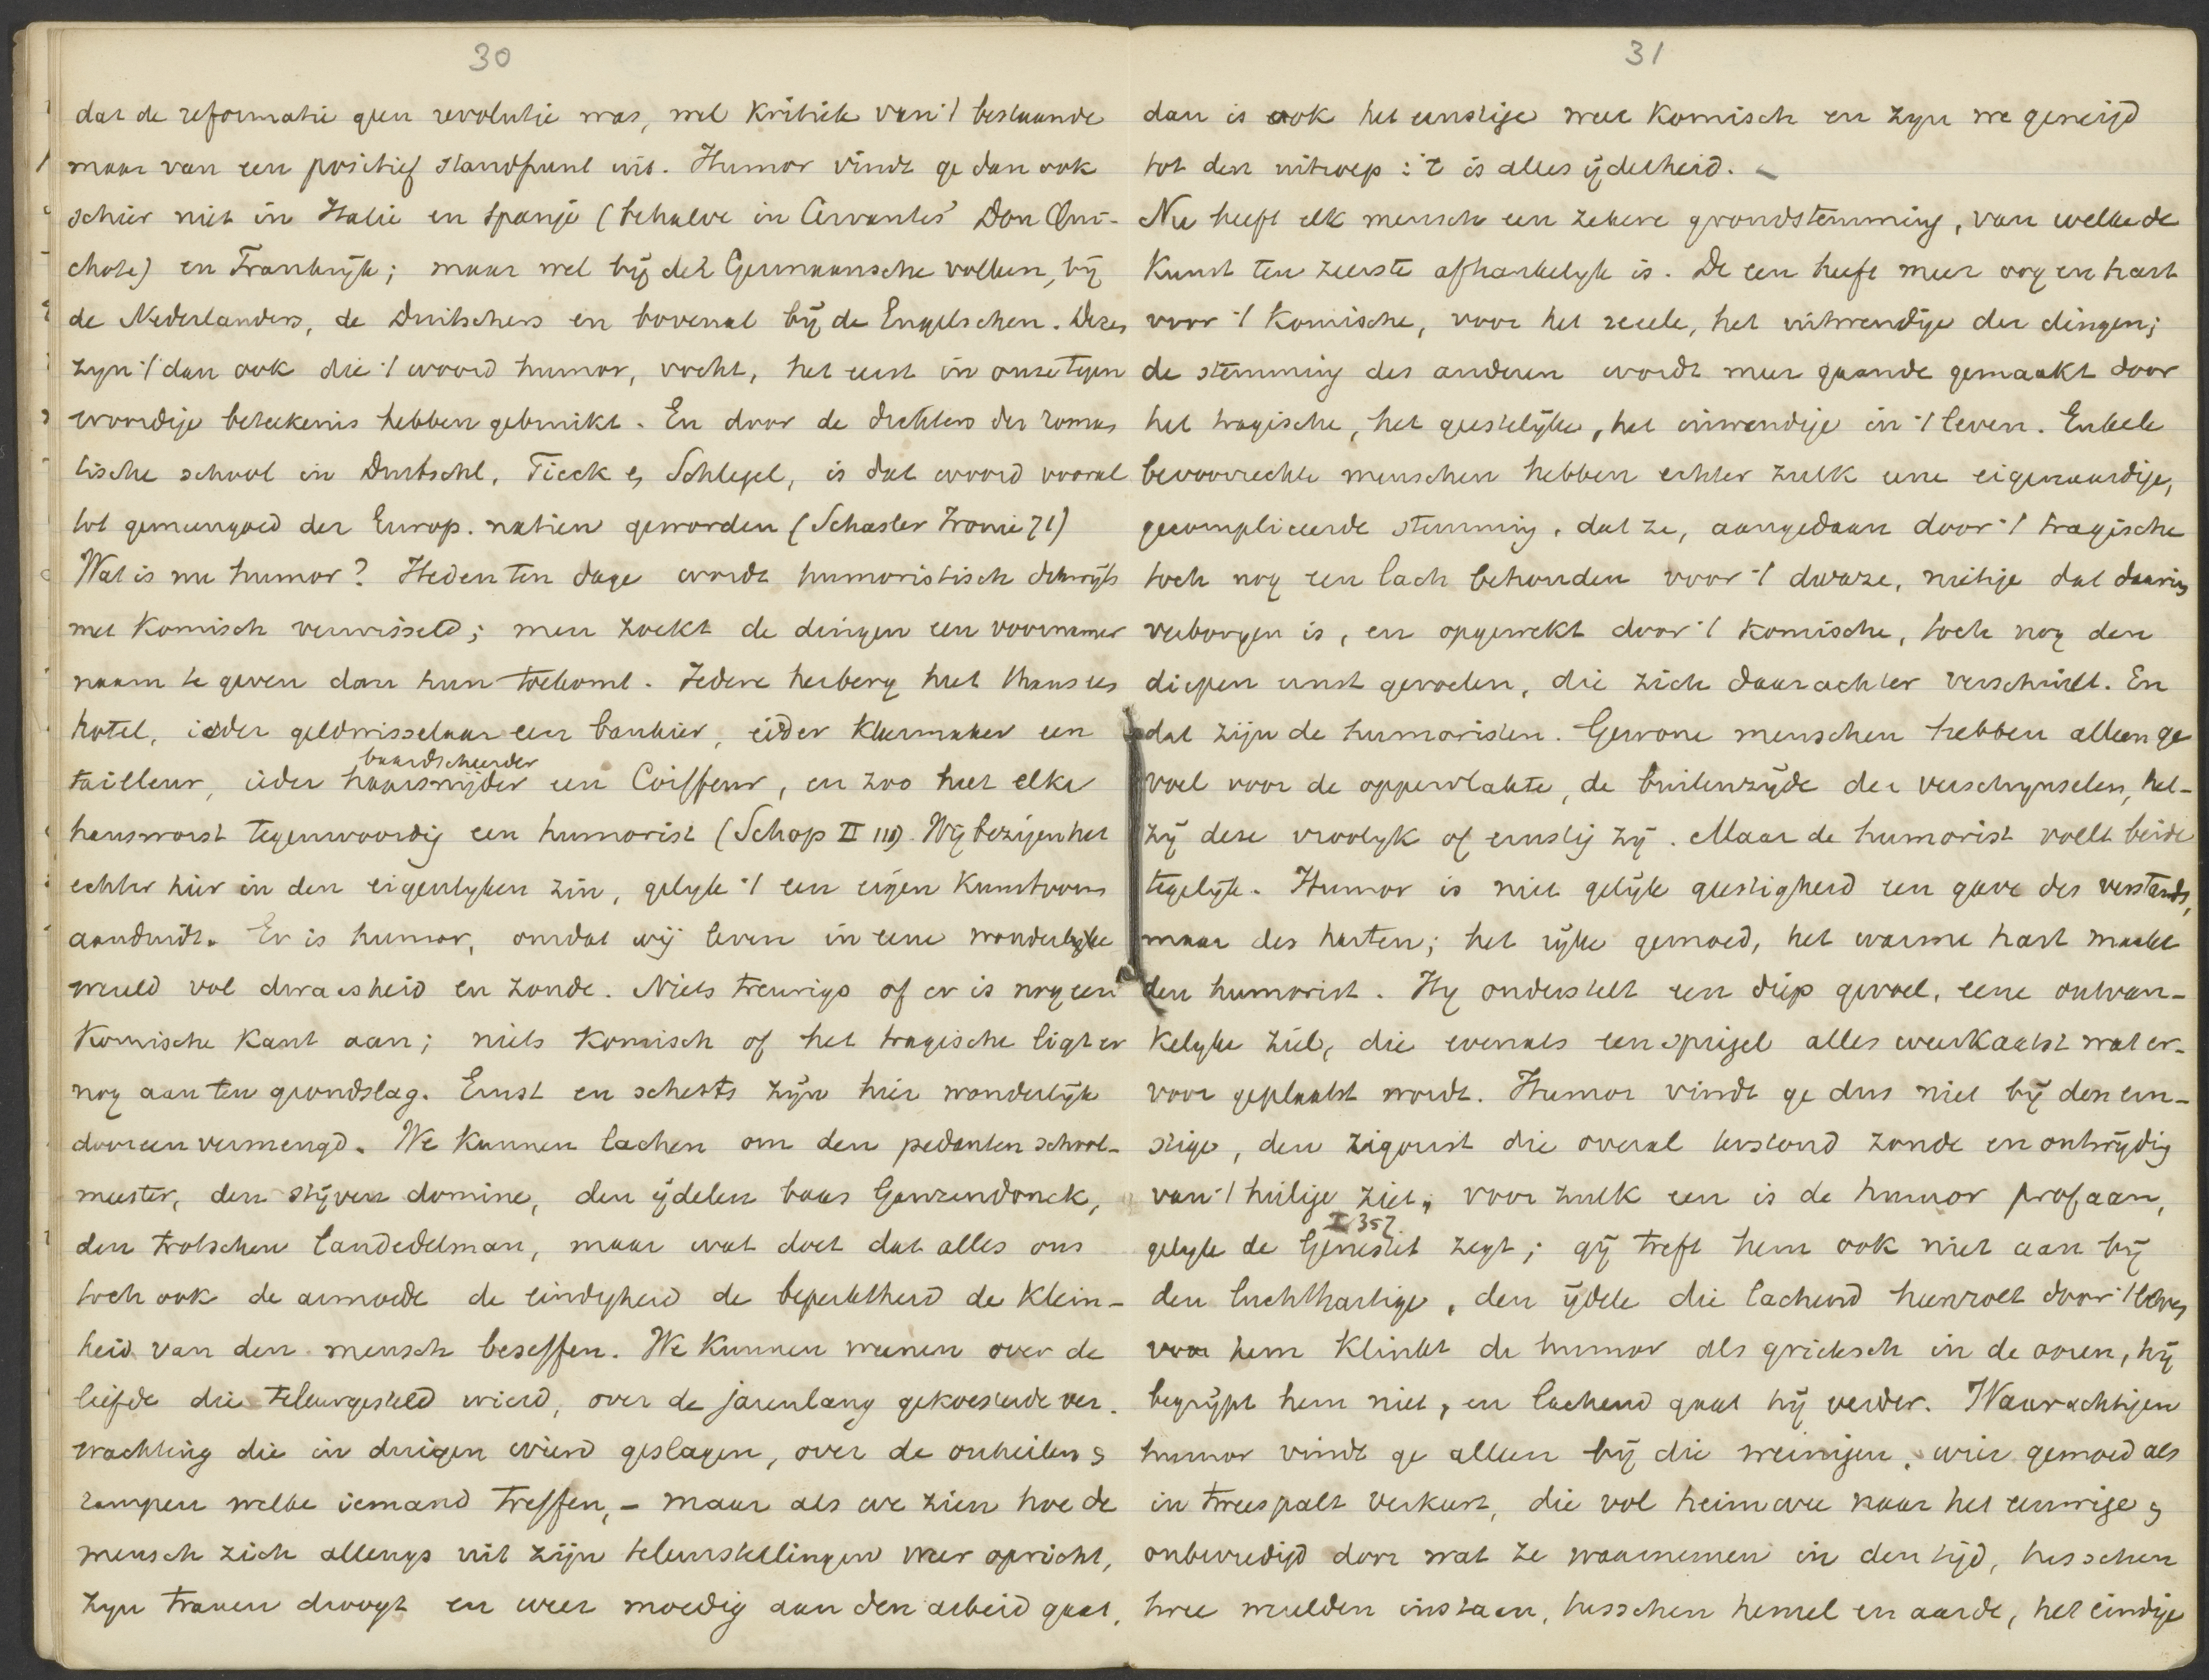 30
dat de reformatie geen revolutie was, wel kritiek van 't bestaande
maar van een positief standpunt uit. Humor vindt ge dan ook
schier niet in Italie en Spanje (behalve in Cervantes' Don Qui-
chote) en Frankrijk; maar wel bij de Germaansche volken, bij
de Nederlanders, de Duitschers en bovenal bij de Engelschen. Dezen
zyn 't dan ook die 't woord humor, vocht, het eerst in onze tegen
woordige beteekenis hebben gebruikt. En door de dichters der roman
tische school in Duitschl, Tieck & Schlegel, is dat woord vooral
tot gemeengoed der Europ. natien geworden (Schasler Ironie 71)
Wat is nu humor? Heden ten dage wordt humoristisch dikwijls
met komisch verwisseld; men zoekt de dingen een voornamer
naam te geven dan hun toekomt. Iedere herberg heet thans een
hotel, ieder geldwisselaar een bankier, ieder kleermaker een
baardscheerder
tailleur, ieder haarsnijder een Coiffeur, en zoo heet elke
hansworst tegenwoordig een humorist (Schop II 111) Wij bezigen het
echter hier in den eigenlyken zin, gelyk 't een eigen kunstvorm
aanduidt. Er is humor, omdat wij leven in eene wonderlyke
wereld vol dwaasheid en zonde. Niets treurigs of er is nog een
komische kant aan; niets komisch of het tragische ligt er
nog aan ten grondslag. Ernst en scherts zijn hier wonderlijk
dooreen vermengd. We kunnen lachen om den pedanten school-
meester, den stijven domine, den ijdelen baas Ganzendonck,
den trotschen landedelman, maar wat doet dat alles ons
toch ook de armoede de eindigheid de beperktheid de klein-
heid van den mensch beseffen. We kunnen weenen over de
liefde die teleurgesteld wierd, over de jarenlang gekoesterde ver-
wachting die in duigen wierd geslagen, over de onheilen &
rampen welke iemand treffen, - maar als we zien hoe de
mensch zich allengs uit zijn teleurstellingen weer opricht,
zyn tranen droogt en weer moedig aan den arbeid gaat,
31
dan is ook het ernstige weer komisch en zyn we geneigd
tot den uitroep: 't is alles ijdelheid.
Nu heeft elk mensch een zekere grondstemming, van welke de
kunst ten zeerste afhankelyk is. De een heeft meer oog en hart
voor 't komische, voor het reeele, het uitwendige der dingen;
de stemming des anderen wordt meer gaande gemaakt door
het tragische, het geestelijke, het inwendige in 't leven. Enkele
bevoorrechte menschen hebben echter zulk eene eigenaardige,
gecompliceerde stemming, dat ze, aangedaan door 't tragische
toch nog een lach behouden voor 't dwaze, nietige dat daarin
verborgen is, en opgewekt door 't komische, toch nog den
diepen ernst gevoelen, die zich daarachter verschuilt. En
dat zijn de humoristen. Gewone menschen hebben alleen ge
voel voor de oppervlakte, de buitenzijde der verschynselen, het-
zij deze vroolyk of ernstig zij. Maar de humorist voelt beide
tegelijk. Humor is niet gelijk geestigheid een gave des verstands,
maar des harten; het rijke gemoed, het warme hart maakt
den humorist. Hy onderstelt een diep gevoel, eene ontvan-
kelyke ziel, die evenals een spiegel alles weerkaatst wat er-
voor geplaatst wordt. Humor vindt ge dus niet bij den ern-
stige, den zigorist die overal terstond zonde en ontwijding
van 't heilige ziet, voor zulk een is de humor profaan,
I 357
gelyk de Genestet zegt; gij treft hem ook niet aan bij
den luchthartige, den ijdele die lachend heenrolt door 't leven
voor hem klinkt de humor als grieksch in de ooren, hij
begrijpt hem niet, en lachend gaat hij verder. Waarachtigen
humor vindt ge alleen bij die weinigen, wier gemoed als
in tweespalt verkeert, die vol heimwee naar het eeuwige &
onbevredigd door wat ze waarnemen in den tijd, tusschen
twee werelden instaan, tusschen hemel en aarde, het eindige